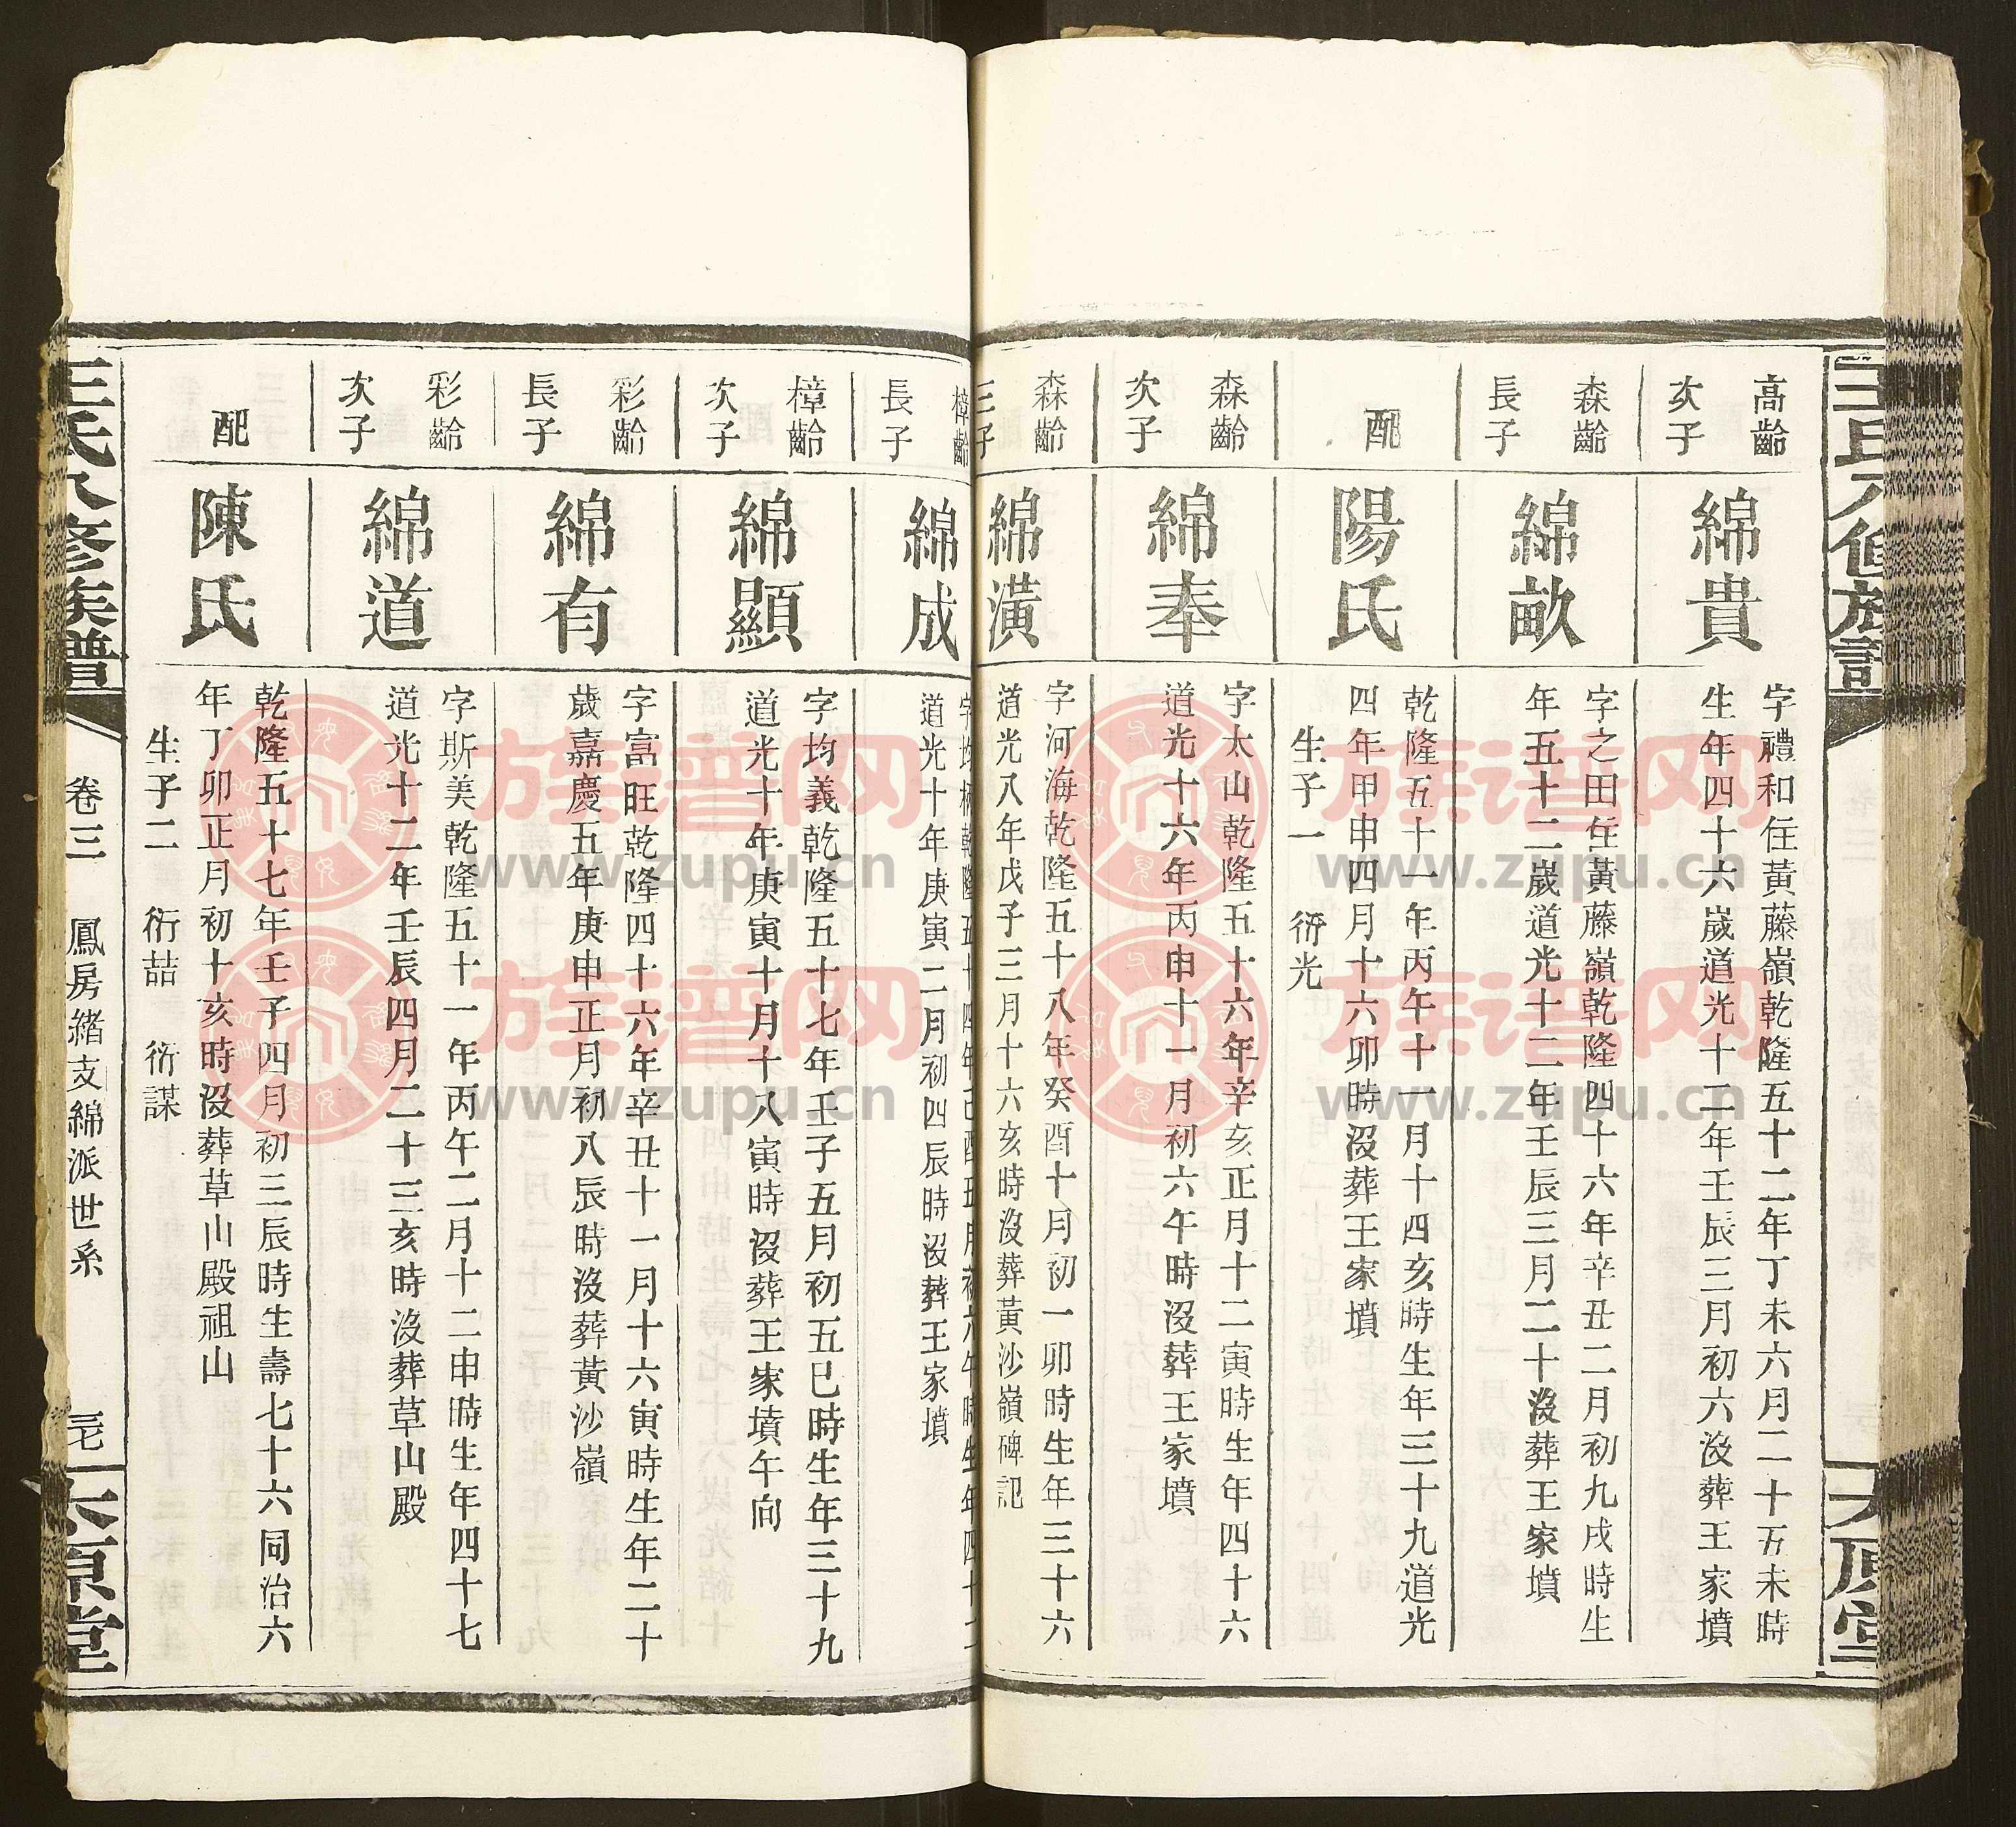 高齡
次子
綿貴
字禮和住黃藤嶺乾隆五十二年丁未六月二十五未時
生年四十六歲道光十二年壬辰三月初六沒葬王家墳
森齡
長子
綿畝
字之田住黃藤嶺乾隆四十六年辛丑二月初九戌時生
年五十二歲道光十二年壬辰三月二十沒葬王家墳
配
陽氏
乾隆五十一年丙午十一月十四亥時生年三十九道光
四年甲申四月十六卯時沒葬王家墳
生子一 衍光
森齡
次子
綿奉
字太山乾隆五十六年辛亥正月十二寅時生年四十六
道光十六年丙申十一月初六午時沒葬王家墳
森齡
三子
綿潢
字河海乾隆五十八年癸酉十月初一卯時生年三十六
道光八年戊子三月十六亥時沒葬黃沙嶺碑記
樟齡
長子
綿成
字均 乾隆五十四年己酉五月初六午時生年四十二
道光十年庚寅二月初四辰時沒葬王家墳
樟齡
次子
綿顯
字均義乾隆五十七年壬子五月初五巳時生年三十九
道光十年庚寅十月十八寅時沒葬王家墳午向
彩齡
長子
綿有
字富旺乾隆四十六年辛丑十一月十六寅時生年二十
歲嘉慶五年庚申正月初八辰時沒葬黃沙嶺
彩齡
次子
綿道
字斯美乾隆五十一年丙午二月十二申時生年四十七
道光十二年壬辰四月二十三亥時沒葬草山殿
配
陳氏
乾隆五十七年壬子四月初三辰時生壽七十六同治六
年丁卯正月初十亥時沒葬草山殿祖山
生子二 衍喆 衍謀
王氏八修族譜
卷三 鳳房緒支綿派世系
太原堂
王氏八修族譜
太原堂
族谱网
www.zupu.cn
族谱网
www.zupu.cn
族谱网
www.zupu.cn
族谱网
www.zupu.cn